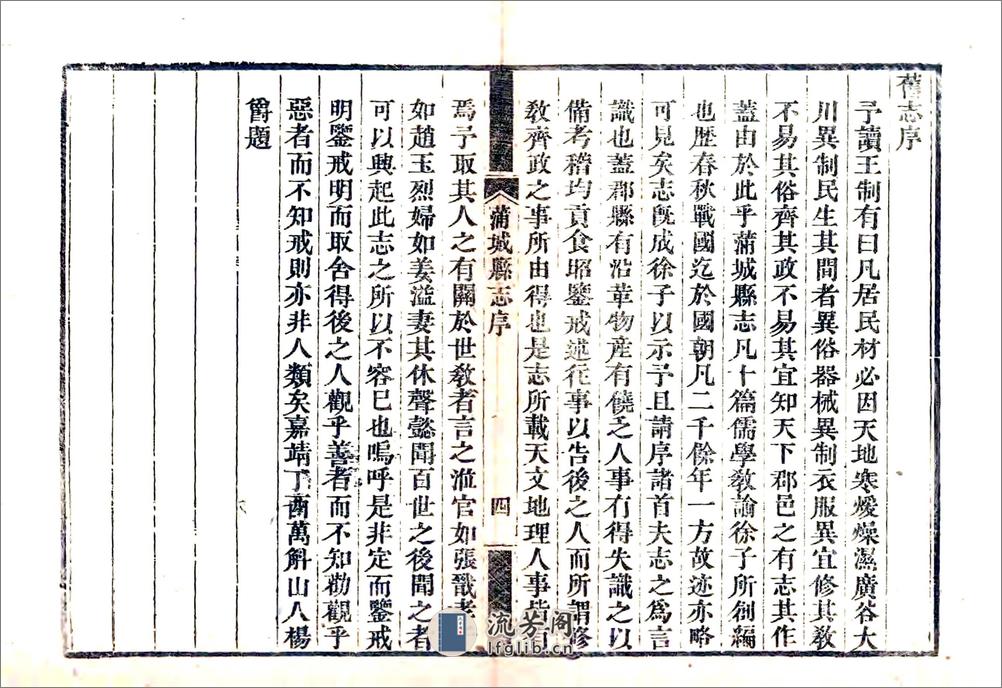 舊志序
予讀王制有曰凡居民材必因天地寒煖燥濕廣谷大
川異制民生其間者異俗器械異制衣服異宜修其敎
不易其俗齊其政不易其宜知天下郡邑之有志其作
蓋由於此乎蒲城縣志凡十篇儒學敎諭徐子所創編
也歷春秋戰國迄於國朝凡二千餘年一方故迹亦略
可見矣志旣成徐子以示予且請序諸首夫志之爲言
識也蓋郡縣有沿革物產有饒乏人事有得失識之以
備考稽均貢食昭鑒戒述往事以告後之人而所謂修
敎齊政之事所由得也是志所載天文地理人事皆
蒲城縣志序
四
焉予取其人之有關於世敎者言之涖官如張戩孝
如趙玉烈婦如姜溢妻其休聲懿聞百世之後聞之者
可以興起此志之所以不容已也嗚呼是非定而鑒戒
明鑒戒明而取舍得後之人觀乎善者而不知勸觀乎
惡者而不知戒則亦非人類矣嘉靖丁酉萬斛山人楊
爵題
流芳阁
lfglib.cn